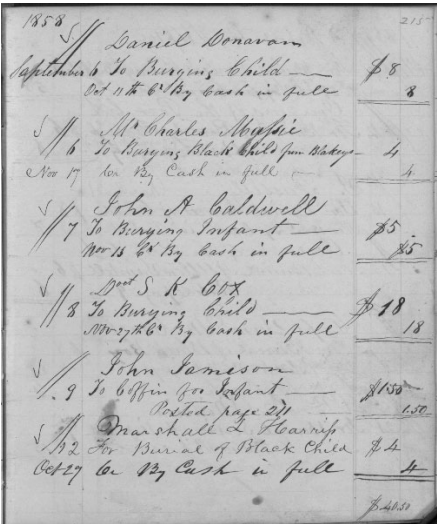 1858 215
Daniel Donavan
September 6 To Burying Child — $8
Oct 11th Cr By Cash in full 8
Mr Charles Massie
" 6 To Burying Black Child from Blakeys — 4
Nov 17 Cr By Cash in full — 4
John A Caldwell
" 7 To Burying Infant — $5
Nov 15 Cr By Cash in full $5
Doct S K Cox
" 8 To Burying Child — $18
Nov 27th Cr By Cash in full 18
John Jamison
" 9 To Coffin for Infant — $1.50
Posted page 211 1.50
Marshall L Harriss
" 12 For Burial of Black Child $4
Oct 27 Cr By Cash in full 4
$40.50